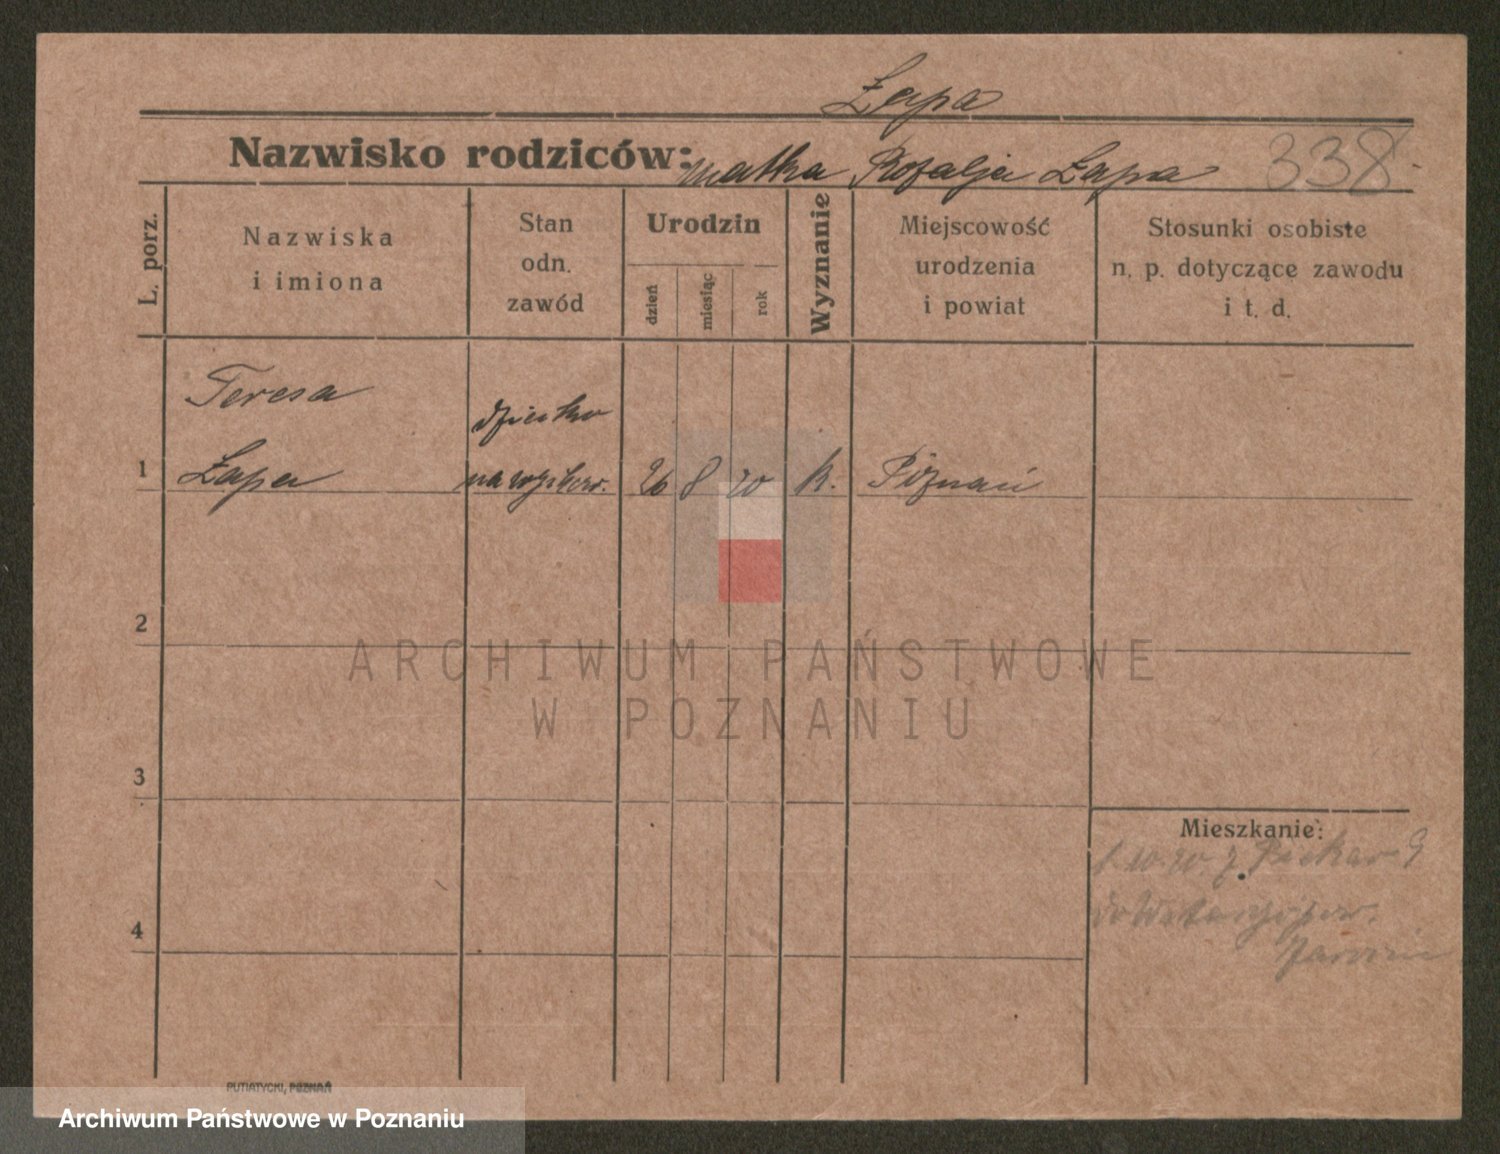 Łapa
Nazwisko rodziców: matka Rozalja Łapa 338
L. porz.
Nazwiska
i imiona
Stan
odn.
zawód
Urodzin
dzień
miesiąc
rok
Wyznanie
Miejscowość
urodzenia
i powiat
Stosunki osobiste
n. p. dotyczące zawodu
i t. d.
Teresa dziecko
1 Łapa 26 8 20 k. Poznań
2
ARCHIWUM PAŃSTWOWE
W POZNANIU
3
Mieszkanie:
Piekar 9
4
Jarocin
PUTIATYCKI, POZNAŃ
Archiwum Państwowe w Poznaniu